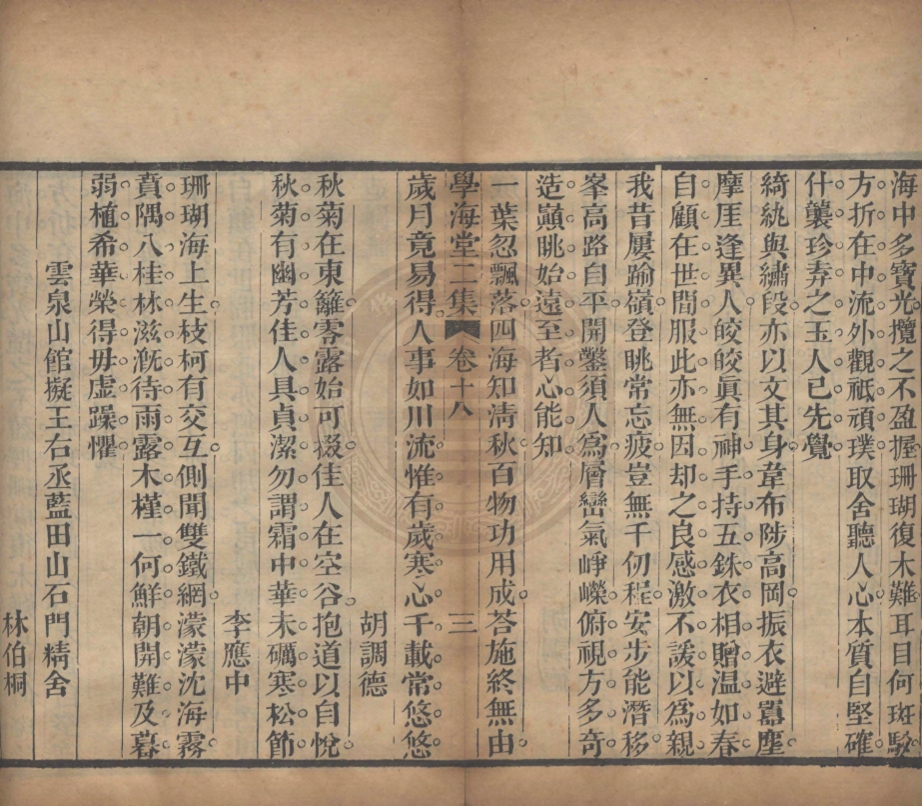 海中多寶光攬之不盈握珊瑚復木難耳目何斑駮
方折在中流外觀祇頑璞取舍聽人心本質自堅確
什襲珍弆之玉人已先覺
綺紈與繡段亦以文其身韋布陟高岡振衣避囂塵
摩厓逢異人皎皎眞有神手持五銖衣相贈温如春
自顧在世間服此亦無因却之良感激不諼以爲親
我昔屢踰嶺登眺常忘疲豈無千仞程安步能潛移
峯高路自平開鑿須人爲層巒氣崢嶸俯視方多奇
造巔眺始遠至者心能知
一葉忽飄落四海知淸秋百物功用成荅施終無由
學海堂二集 卷十八 三
歲月竟易得人事如川流惟有歲寒心千載常悠悠
胡調德
秋菊在東籬零露始可掇佳人在空谷抱道以自悅
秋菊有幽芳佳人具貞潔勿謂霜中華未礪寒松節
李應中
珊瑚海上生枝柯有交互側聞雙鐵網濛濛沈海霧
賁隅八桂林滋漑待雨露木槿一何鮮朝開難及暮
弱植希華榮得毋虛躁懼
雲泉山館擬王右丞藍田山石門精舍
林伯桐